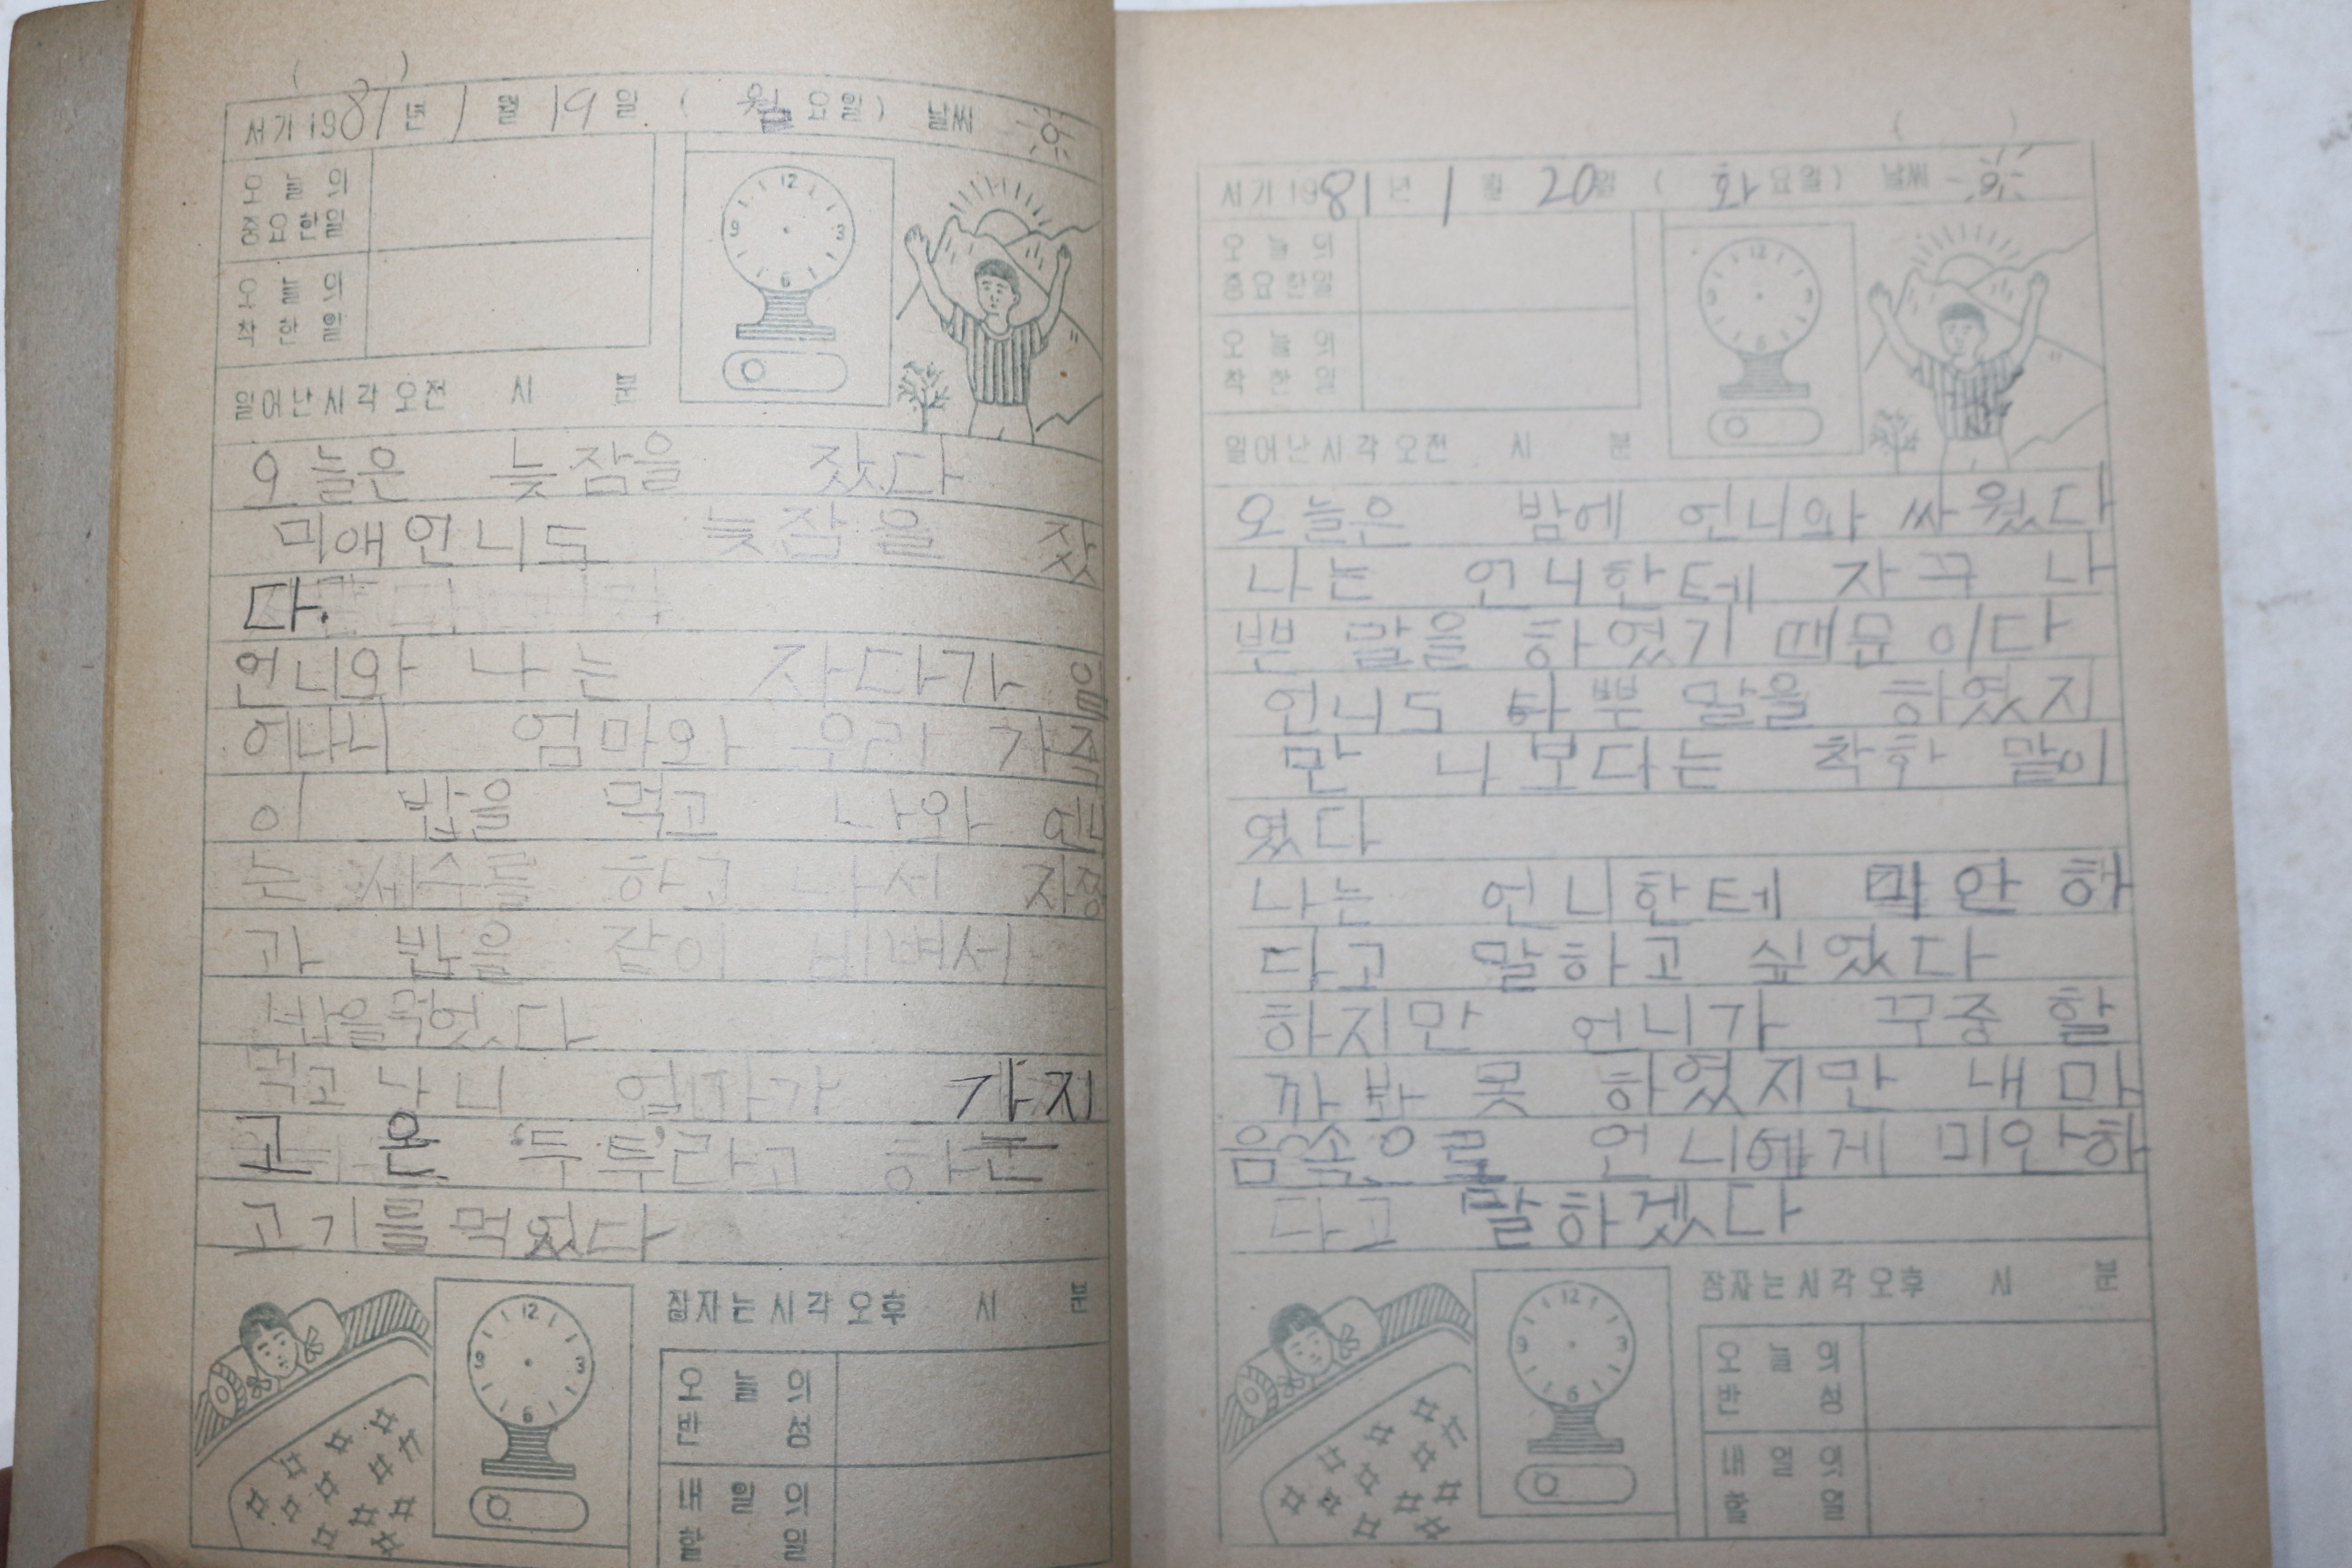 ( )
서기 1981년 1월 19일 ( 월요일) 날씨
오늘의
중요한일
12
3
6
9
오늘의
착한일
일어난시각 오전 시 분
오늘은 늦잠을 잤다
미애언니도 늦잠을 잤
다.
언니와 나는 자다가 일
어나니 엄마와 우리 가족
이 밥을 먹고 나와 언니
는 세수를 하고 나서 자장
과 밥을 같이 비벼서
밥을먹었다
먹고 나니 엄마가 가지
고 온 '두투'라고 하는
고기를 먹었다
12
3
6
9
잠자는시각 오후 시 분
오늘의
반성
내일의
할일
( )
서기 1981년 1월 20일 ( 화요일) 날씨
오늘의
중요한일
12
3
6
9
오늘의
착한일
일어난시각 오전 시 분
오늘은 밤에 언니와 싸웠다
나는 언니한테 자꾸 나
쁜 말을 하였기 때문이다
언니도 나쁜 말을 하였지
만 나보다는 착한 말이
였다
나는 언니한테 미안하
다고 말하고 싶었다
하지만 언니가 꾸중 할
까봐 못 하였지만 내 마
음속으로 언니에게 미안하
다고 말하겠다
12
3
6
9
잠자는시각 오후 시 분
오늘의
반성
내일의
할일